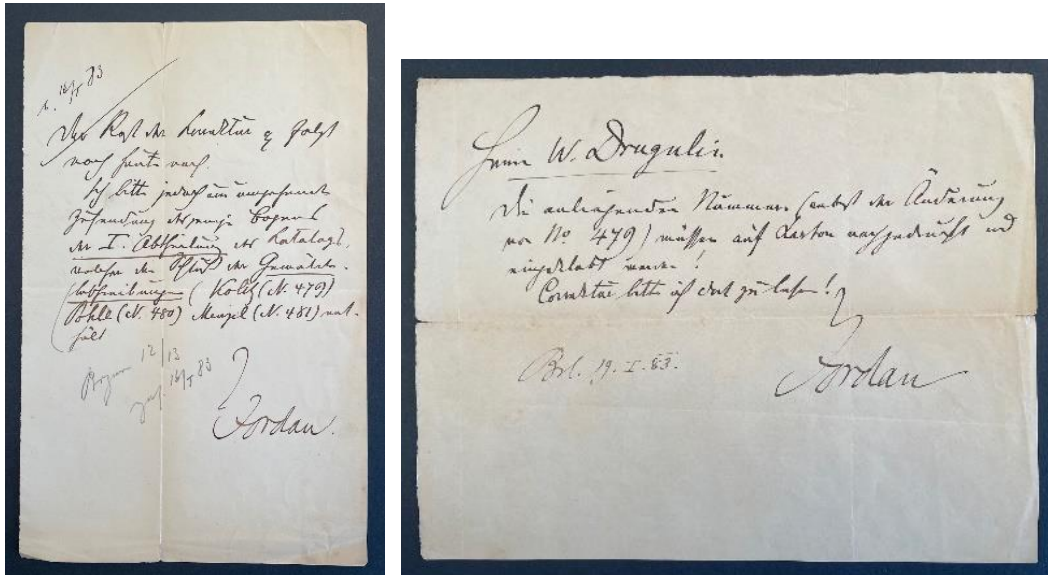 16/I 83
Der Rest der Correktur folgt
noch heute nach.
Ich bitte jedoch um umgehende
Zusendung desjenigen Bogens
der I. Abtheilung des Katalogs,
welcher den Schluß der Gemälde-
beschreibungen (Kolitz (N. 479)
Pohle (N. 480) Menzel (N. 481) ent-
hält
Bogen 12/13
16/I 83
Jordan.
Herrn W. Drugulin.
Die anliegenden Nummern (nebst der Änderung
von No. 479) müssen auf Karton nachgedruckt und
eingeklebt werden!
Correktur bitte ich dort zu lesen!
Brl. 19. I. 83.
Jordan